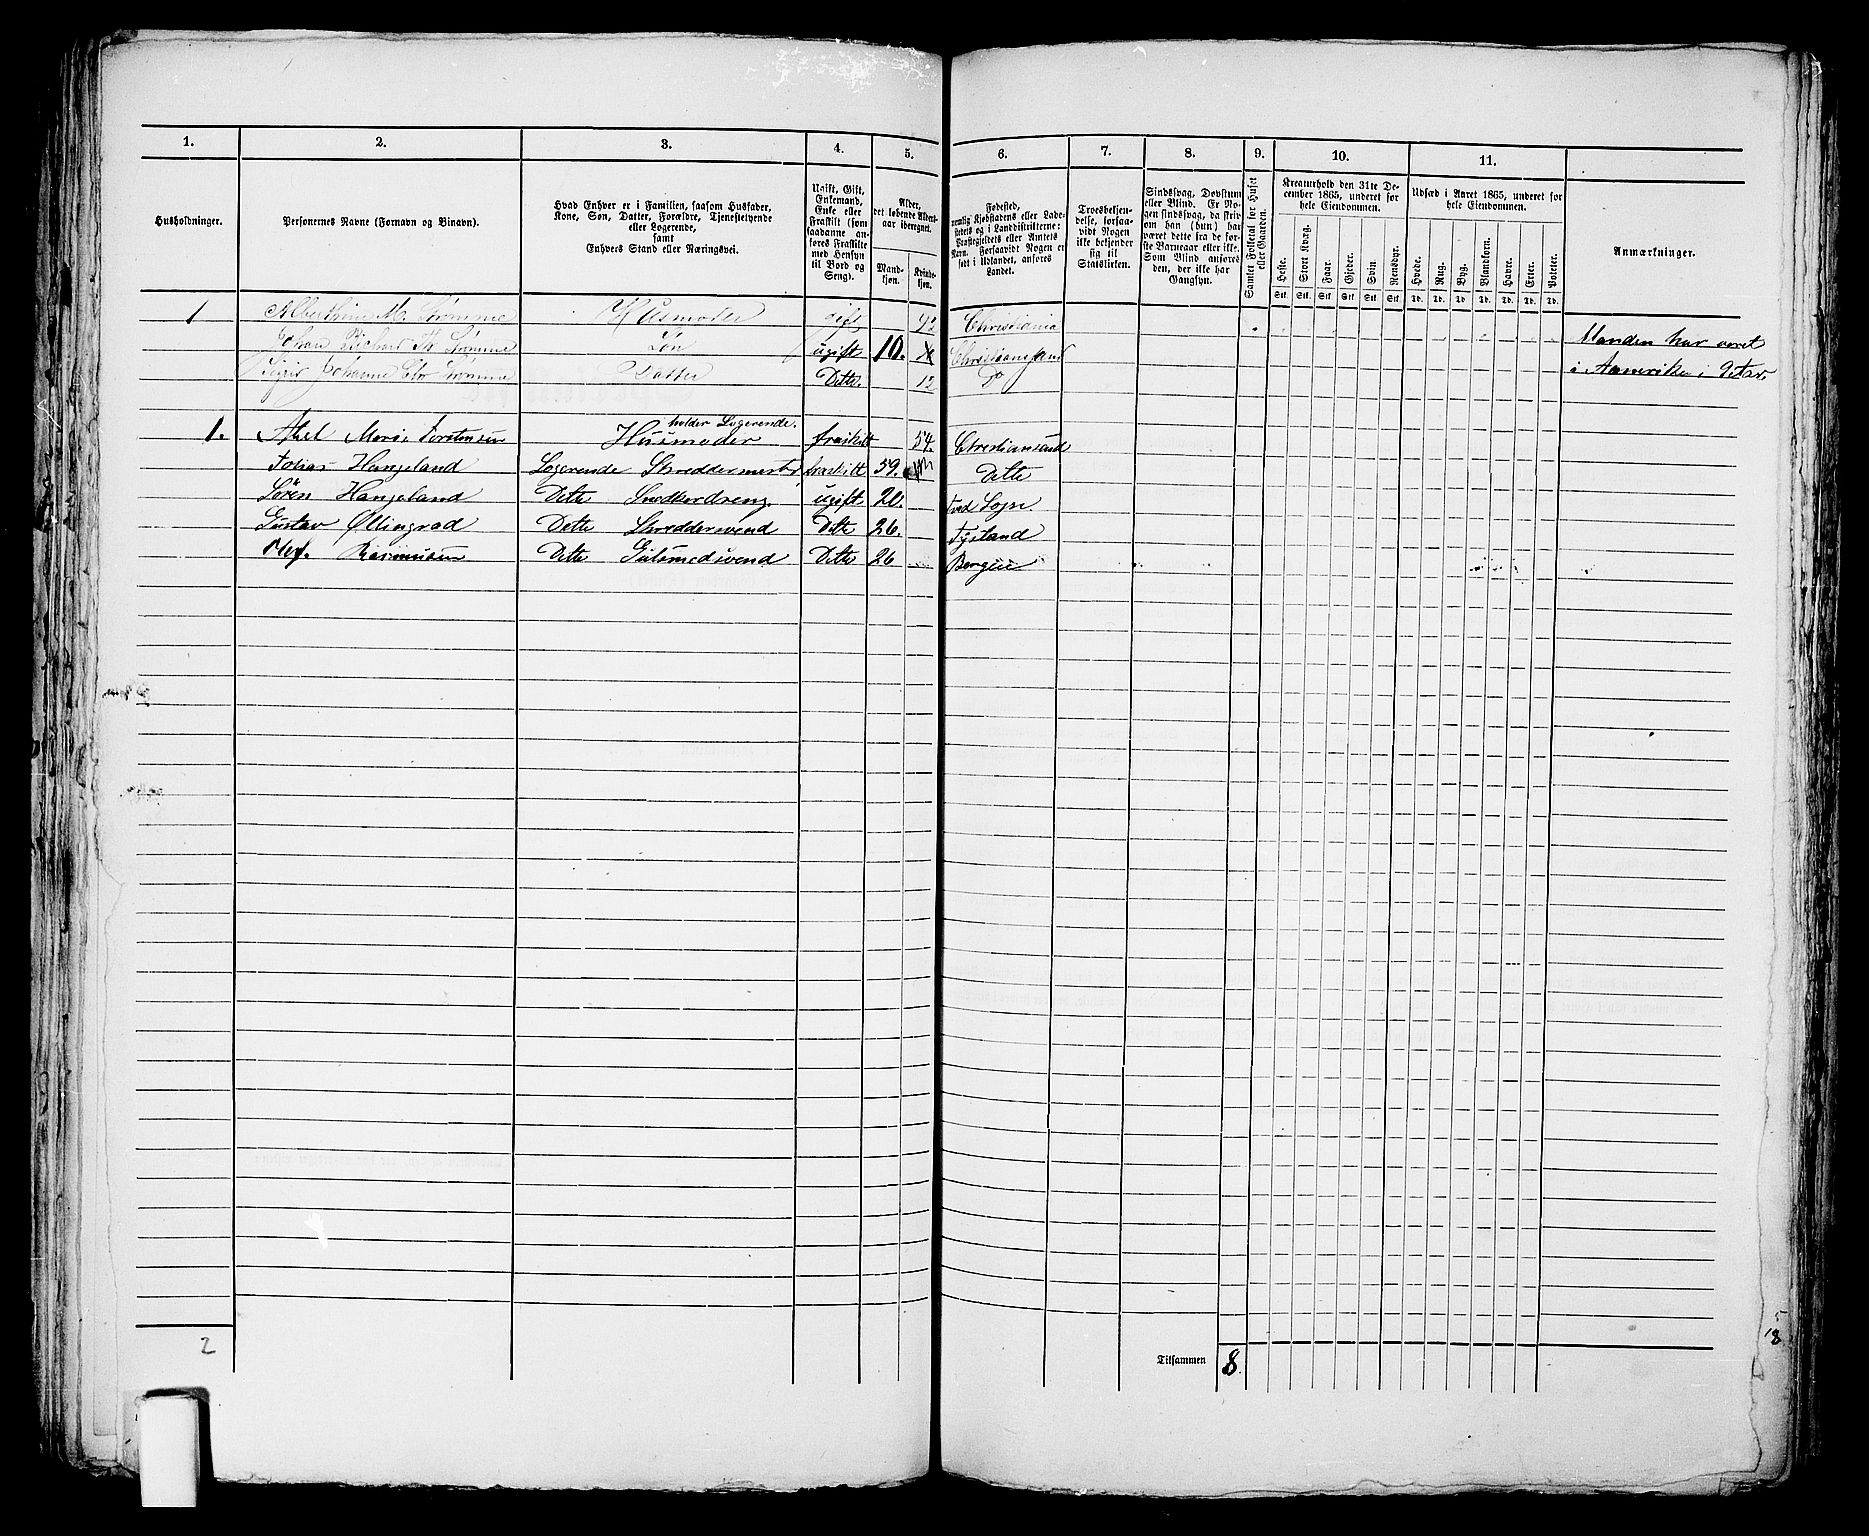 1. 2. 3. 4. 5. 6. 7. 8. 9. 10. 11.
Husholdninger.
Personernes Navne (Fornavn og Binavn).
Hvad Enhver er i Familien, saasom Husfader,
Kone, Søn, Datter, Forældre, Tjenestetyende
eller Logerende,
samt
Enhvers Stand eller Næringsvei.
Ugift, Gift,
Enkemand,
Enke eller
Fraskilt (som
saadanne an-
føres Fraskilte
med Hensyn
til Bord og
Seng).
Alder,
det løbende Alders-
aar iberegnet.
Mand-
kjøn.
Kvinde-
kjøn.
Fødested,
nemlig Kjøbstadens eller Lade-
stedets og i Landdistrikterne:
Præstegjeldets eller Amtets
Navn. Forsaavidt Nogen er
født i Udlandet, anføres
Landet.
Troesbekjen-
delse, forsaa-
vidt Nogen
ikke bekjender
sig til
Statskirken.
Sindssvag, Døvstum
eller Blind. Er No-
gen sindssvag, da skriv
om han (hun) har
været dette fra de før-
ste Barneaar eller ikke.
Som Blind anføres
den, der ikke har
Gangsyn.
Samlet Folketal for Huset
eller Gaarden.
Kreaturhold den 31te De-
cember 1865, underet for
hele Eiendommen.
Heste. Stort Kvæg. Faar. Gjeder. Svin. Rensdyr.
Stk. Stk. Stk. Stk. Stk. Stk.
Udsæd i Aaret 1865, underet for
hele Eiendommen.
Hvede. Rug. Byg. Blandkorn. Havre. Erter. Poteter.
Td. Td. Td. Td. Td. Td. Td.
Anmærkninger.
1 Alberthine M. Strømme Husmoder gift 42 Christiania
Johan Richard Strømme Søn ugift 10. Christiansand Manden har været
Johanne Chr Strømme Datter Dette. 12 Do i Amerika i 9 Aar
holder Logerende.
1. Marie Torstensen Husmoder fraskilt 54. Christiansand
Tobias Hangeland Logerende Skreddermester fraskilt 59. Dette
Søren Hangeland Dette Snedkerdreng ugift 20.
Gustav Øllingrad Dette Skreddersvend Dette 26.
Olef. Rasmusen Dette Gulsmedsvend Dette 26 Bergen
2
Tilsammen 8.